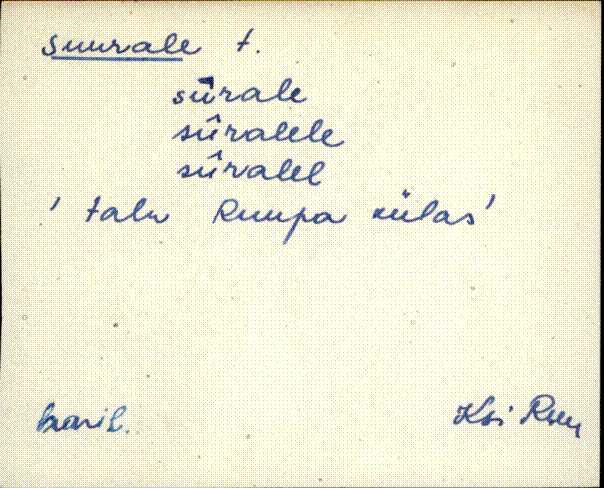 suurale t.
sûrale
sûralele
sûralel
' talu Ruupa külas'
haril.
Ksi Rsu